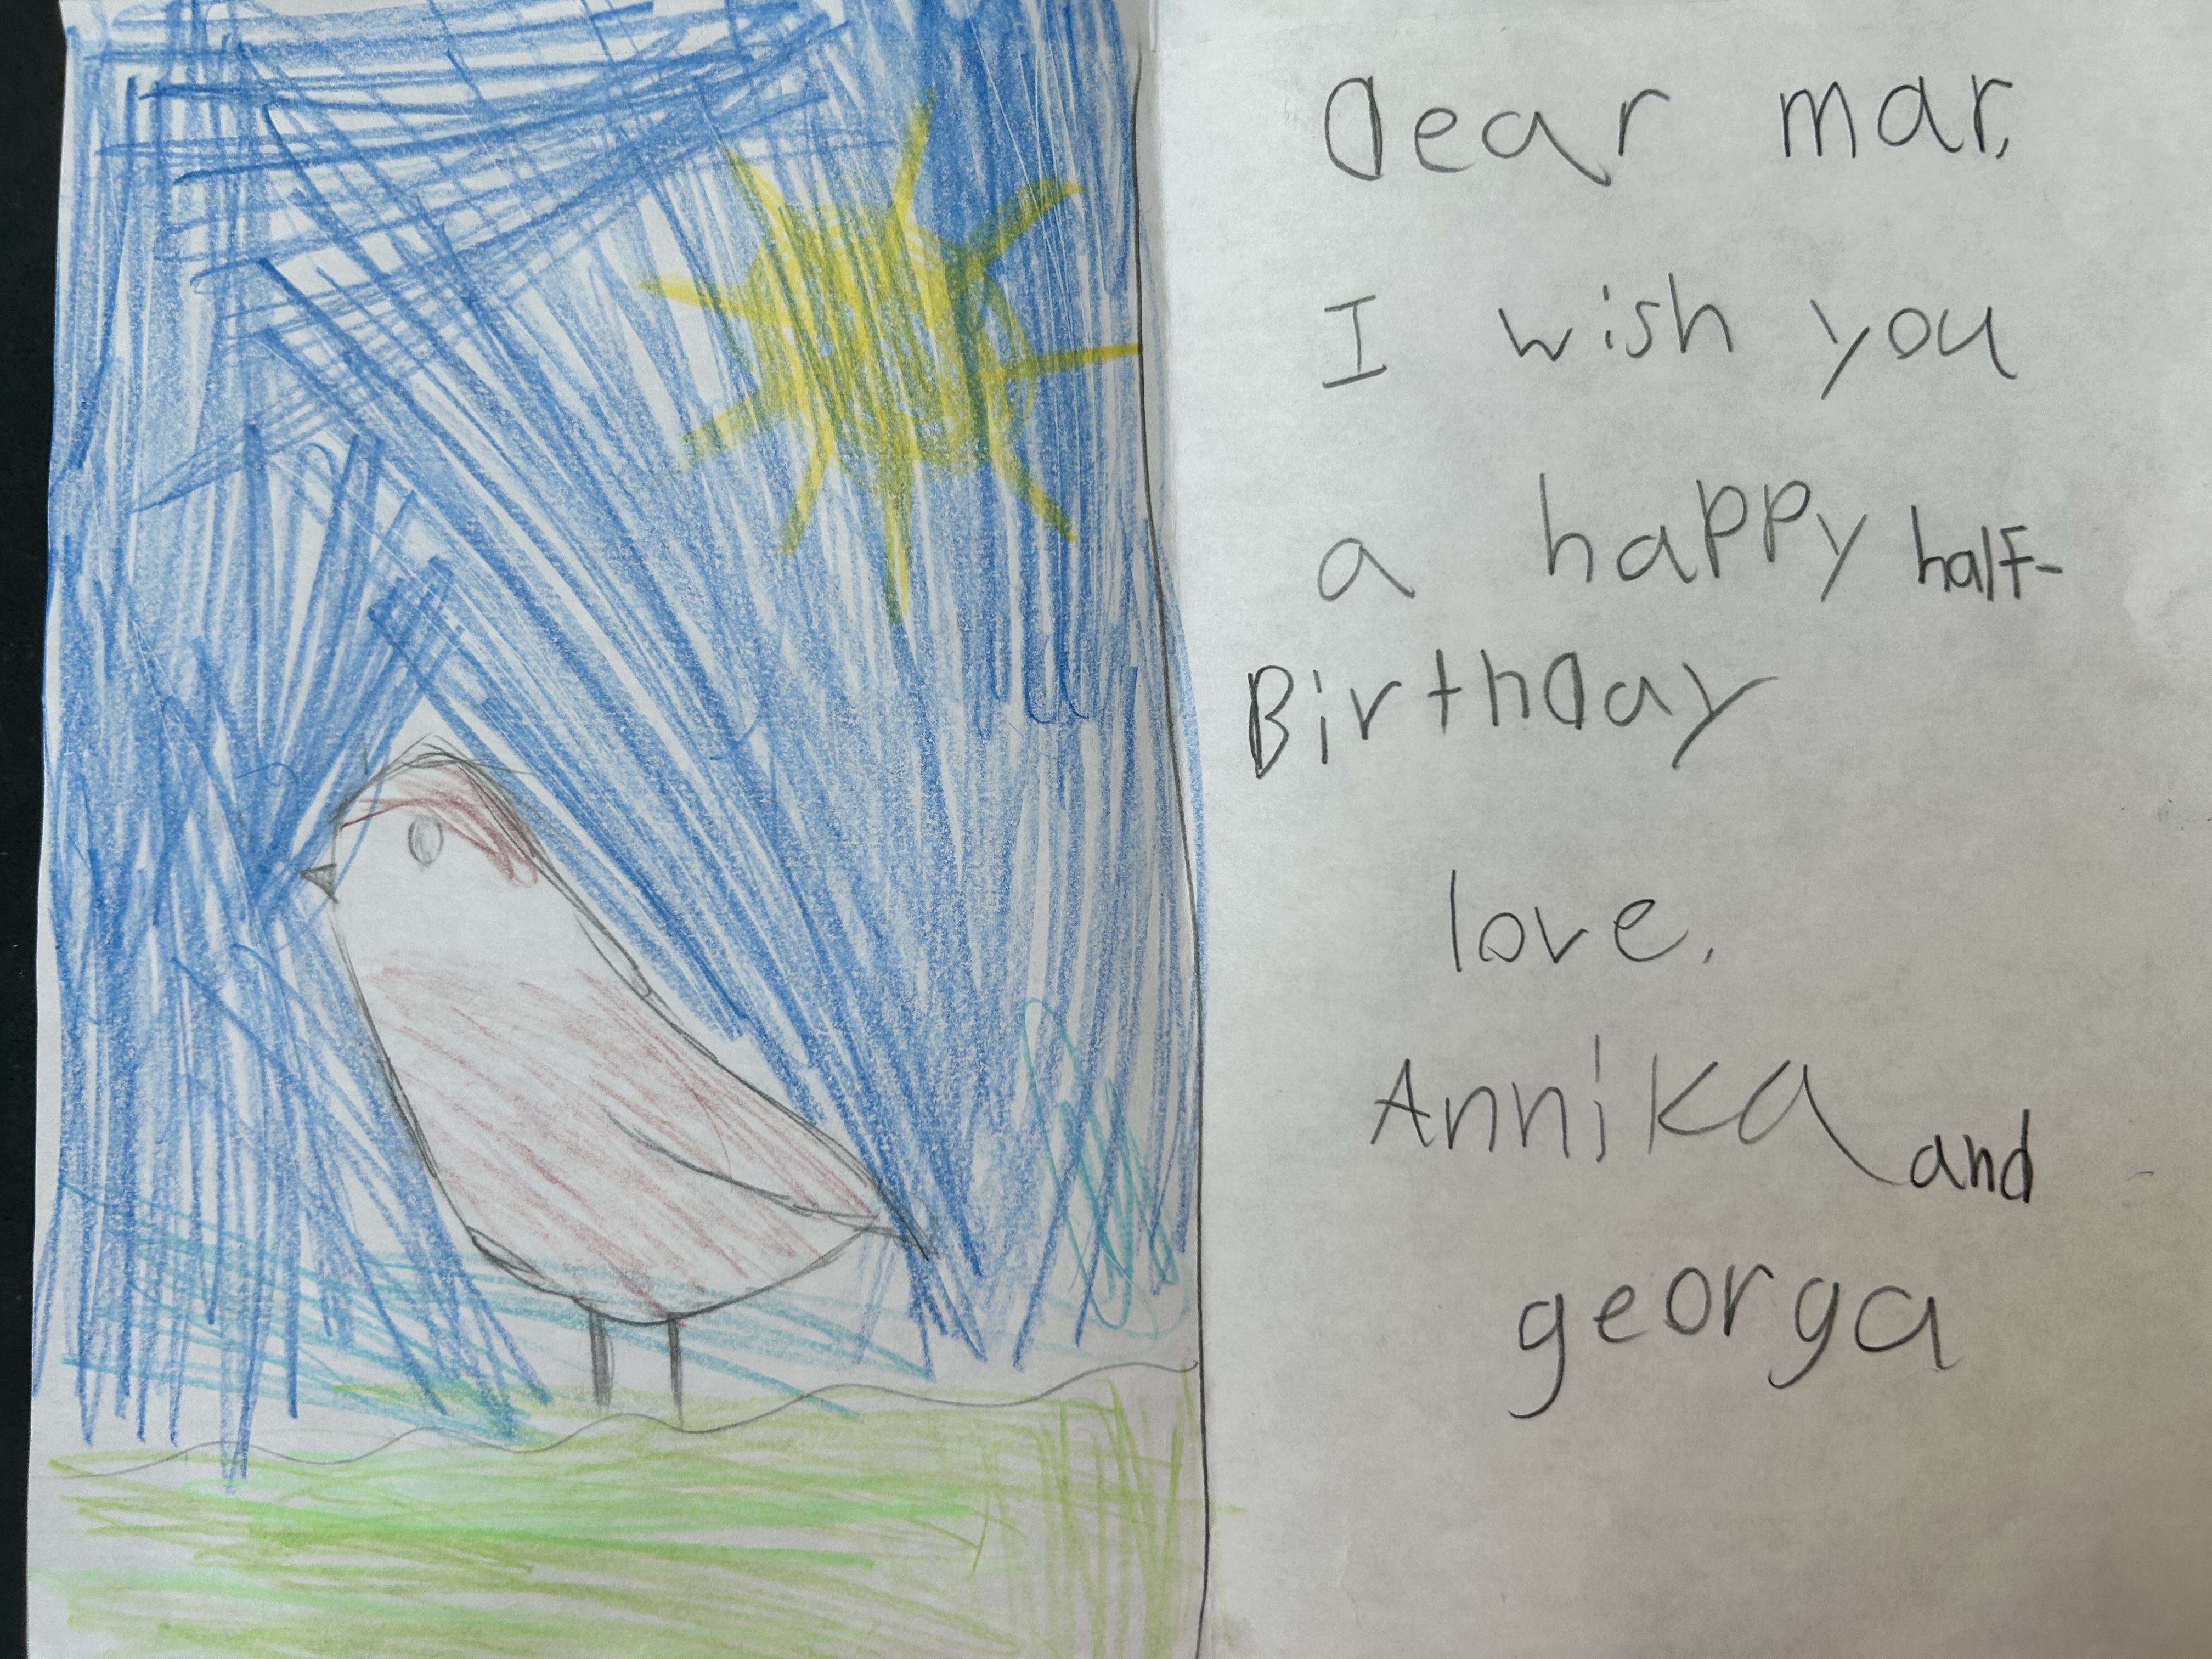 Dear mar,
I wish you
a happy half-
BirthDay
love,
Annika and
georga